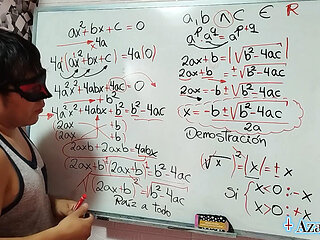 ax²+bx+c=0
x4a
4a(ax²+bx+c)=4a(0)
4a²x²+4abx+4ac=0
4a²x²+4abx+b²=b²-4ac
(2ax +b)
(2ax +b)
2axb+2axb=4abx
(2ax+b)(2ax+b)=b²-4ac
√(2ax+b)²=b²-4ac
Raíz a todo
a,b ∧ c ∈ R
aᵖa^q=a^(p+q)
2ax+b=|√b²-4ac|
2ax+b=±√b²-4ac
2ax=-b±√b²-4ac
x=-b±√b²-4ac
2a
Demostración
(√x)²=|x|=±x
Si {x<0:-x
x>0:+x
Aza